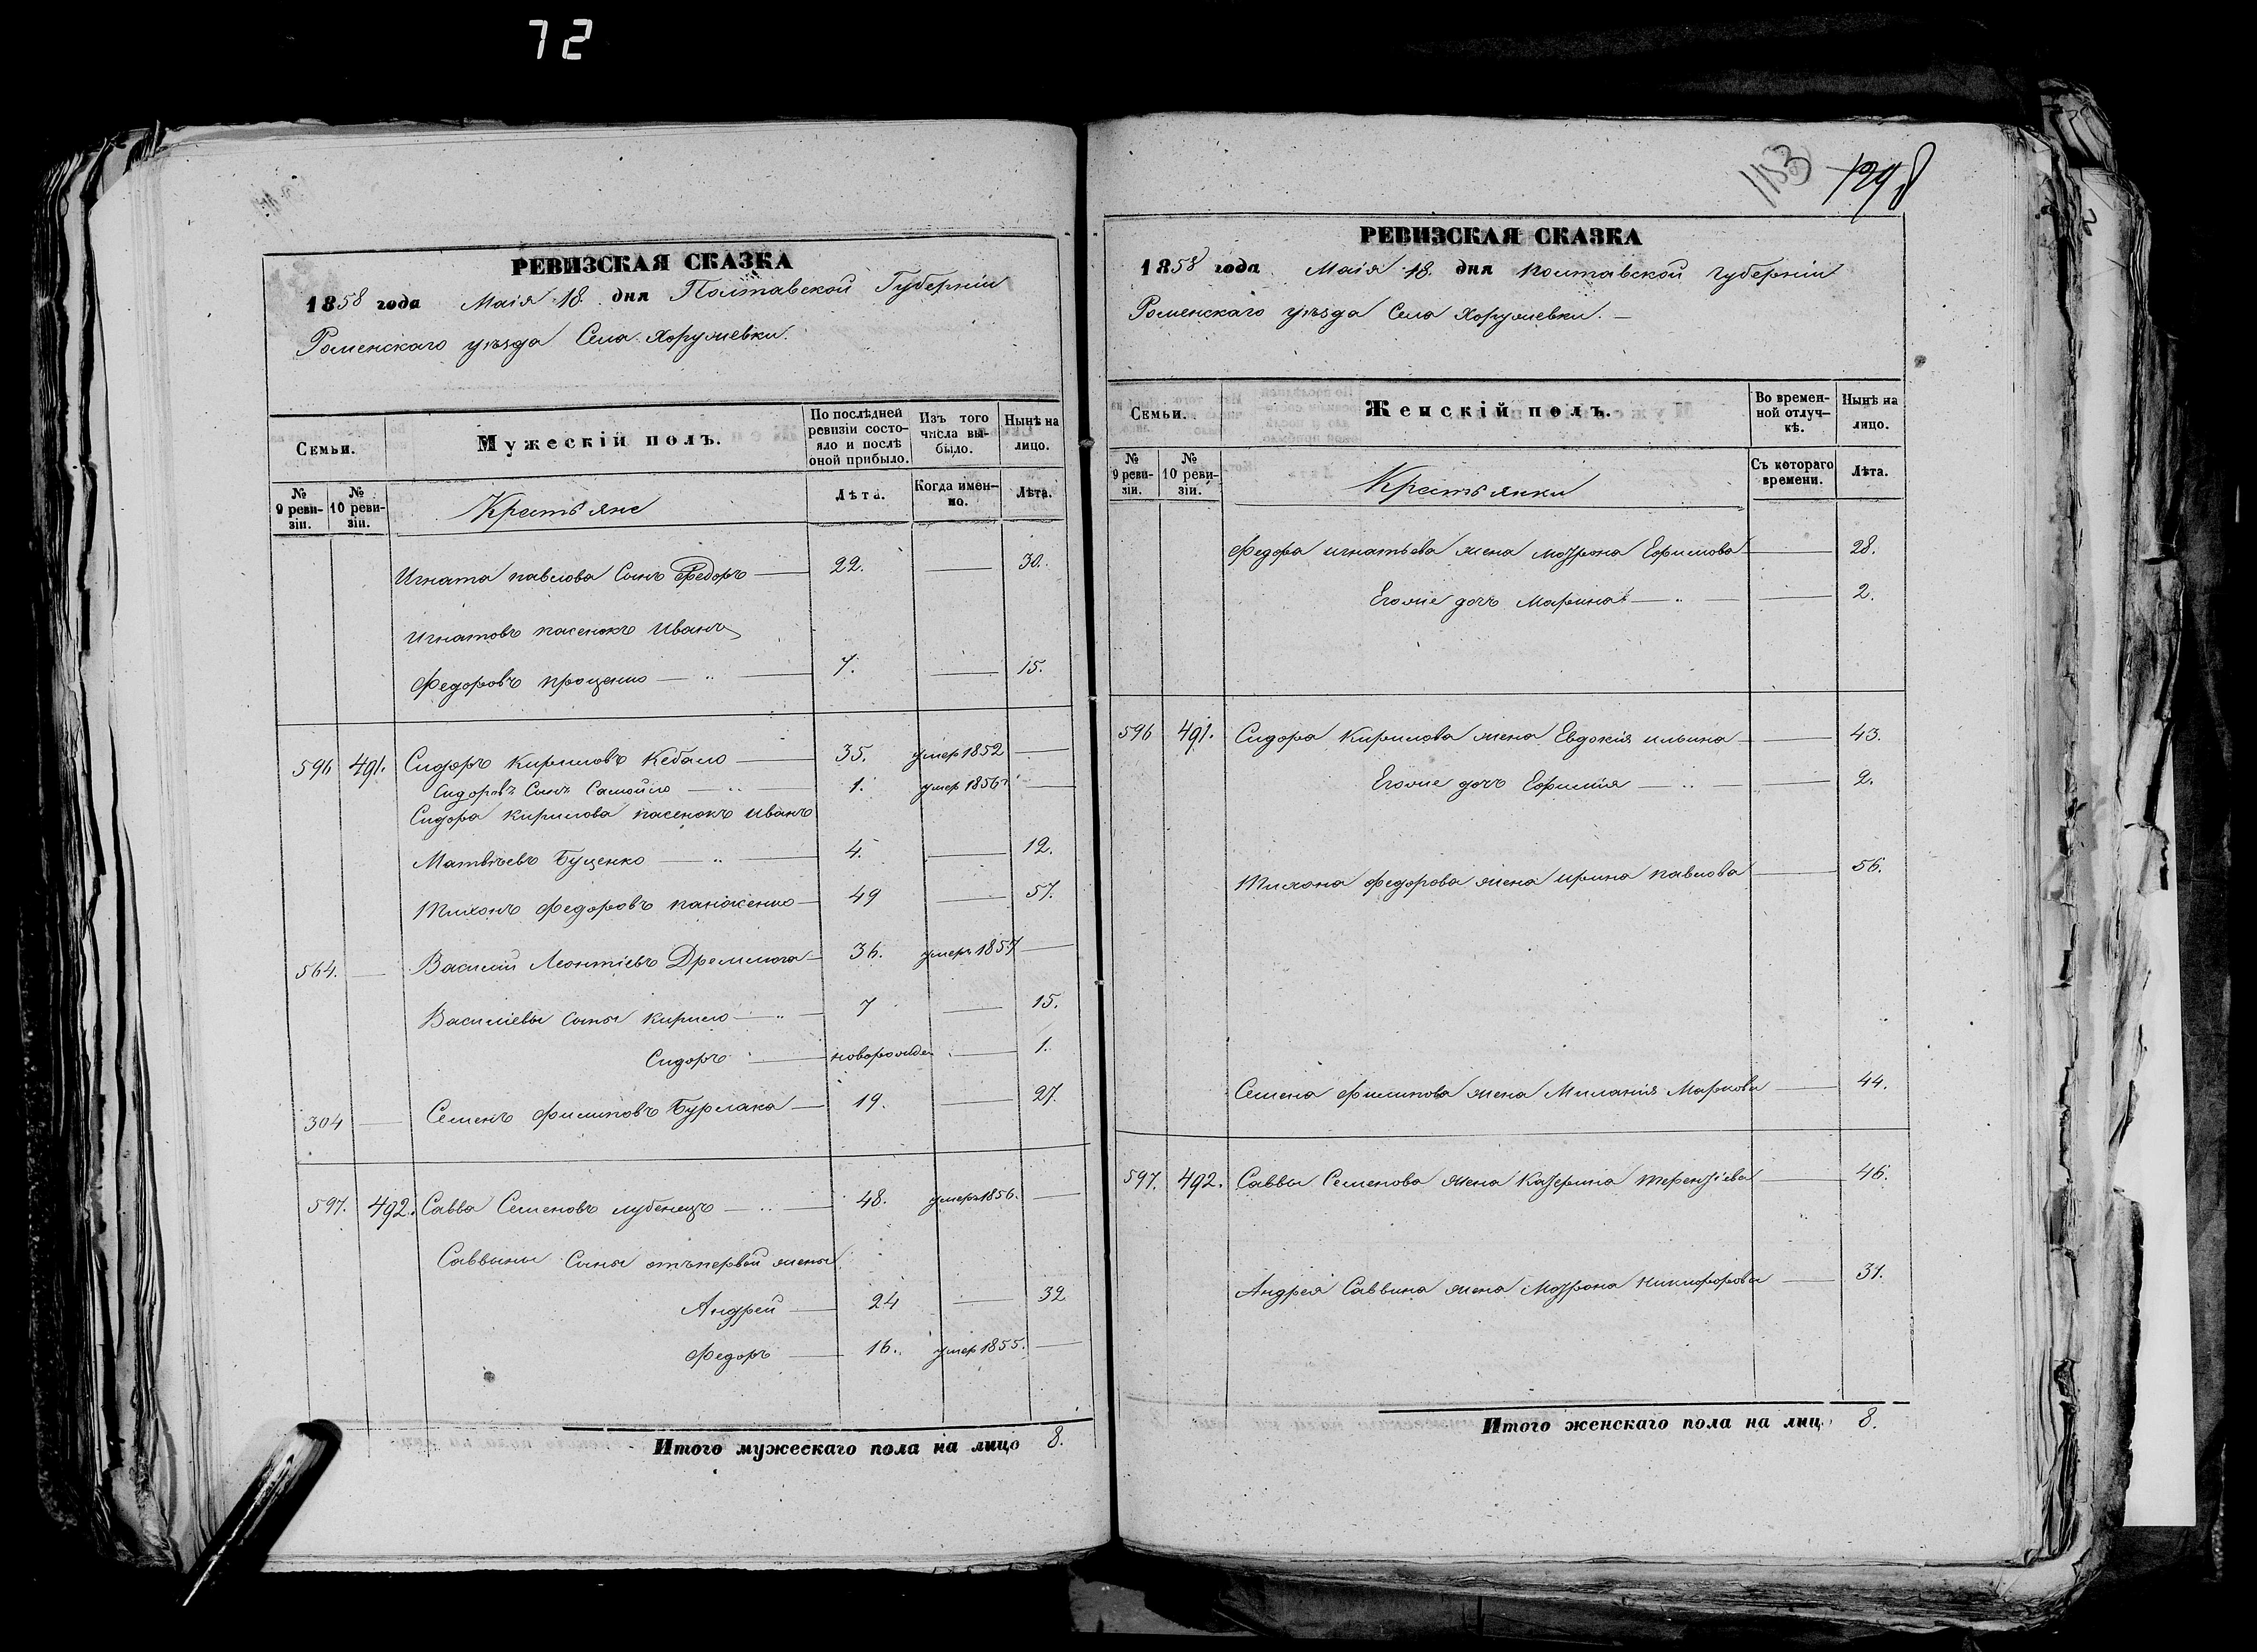 72
РЕВИЗСКАЯ СКАЗКА
1858 года Маія 18. дня Полтавской Губерніи
Роменскаго уѣзда Села Хоружевки.
Семьи.
Мужескій полъ.
По послѣдней ревизіи состояло и послѣ оной прибыло.
Изъ того числа выбыло.
Нынѣ на лицо.
№ 9 ревизіи.
№ 10 ревизіи.
Крестьяне
Лѣта.
Когда именно.
Лѣта.
Игната павлова Сынъ Федоръ 22. 30.
Игнатовъ пасенокъ Иванъ
Федоровъ проценко 7. 15.
596 491. Сидоръ Кириловъ Кебало 35. умер 1852
Сидоровъ Сынъ Самойло 1. умер 1856
Сидора Кирилова пасенокъ Иванъ
Матвѣевъ Буценко 4. 12.
Тихонъ Федоровъ 49 57.
564. Василій Леонтіевъ Дремлюга 36. умеръ 1857
Василіевы Сыны Кирило 7 15.
Сидоръ новорожден 1.
304 Семенъ Филиповъ Бурлака 19. 27.
597. 492. Савва Семеновъ лубенецъ 48. умеръ 1856.
Саввины Сыны отъ первой жены
Андрей 24 32
Федоръ 16. умер 1855.
Итого мужескаго пола на лицо 8.
1153 1298
РЕВИЗСКАЯ СКАЗКА
1858 года Маія 18. дня полтавской губерніи
Роменскаго уѣзда Села Хоружевки.
Семьи.
Женскій полъ.
Во временной отлучкѣ.
Нынѣ на лицо.
№ 9 ревизіи.
№ 10 ревизіи.
Крестьянки
Съ котораго времени.
Лѣта.
Федора игнатьева жена мотрона Ефимова 28.
Егоже дочь Марина 2.
596 491. Сидора Кирилова жена Евдокія ильина 43.
Егоже дочь Ефимія 2.
Тихона Федорова жена ирина павлова 56.
Семена Филипова жена Миланія Маркова 44.
597. 492. Саввы Семенова жена Катерина терентіева 46.
Андрея Саввина жена Мотрона Никифорова 31.
Итого женскаго пола на лиц 8.